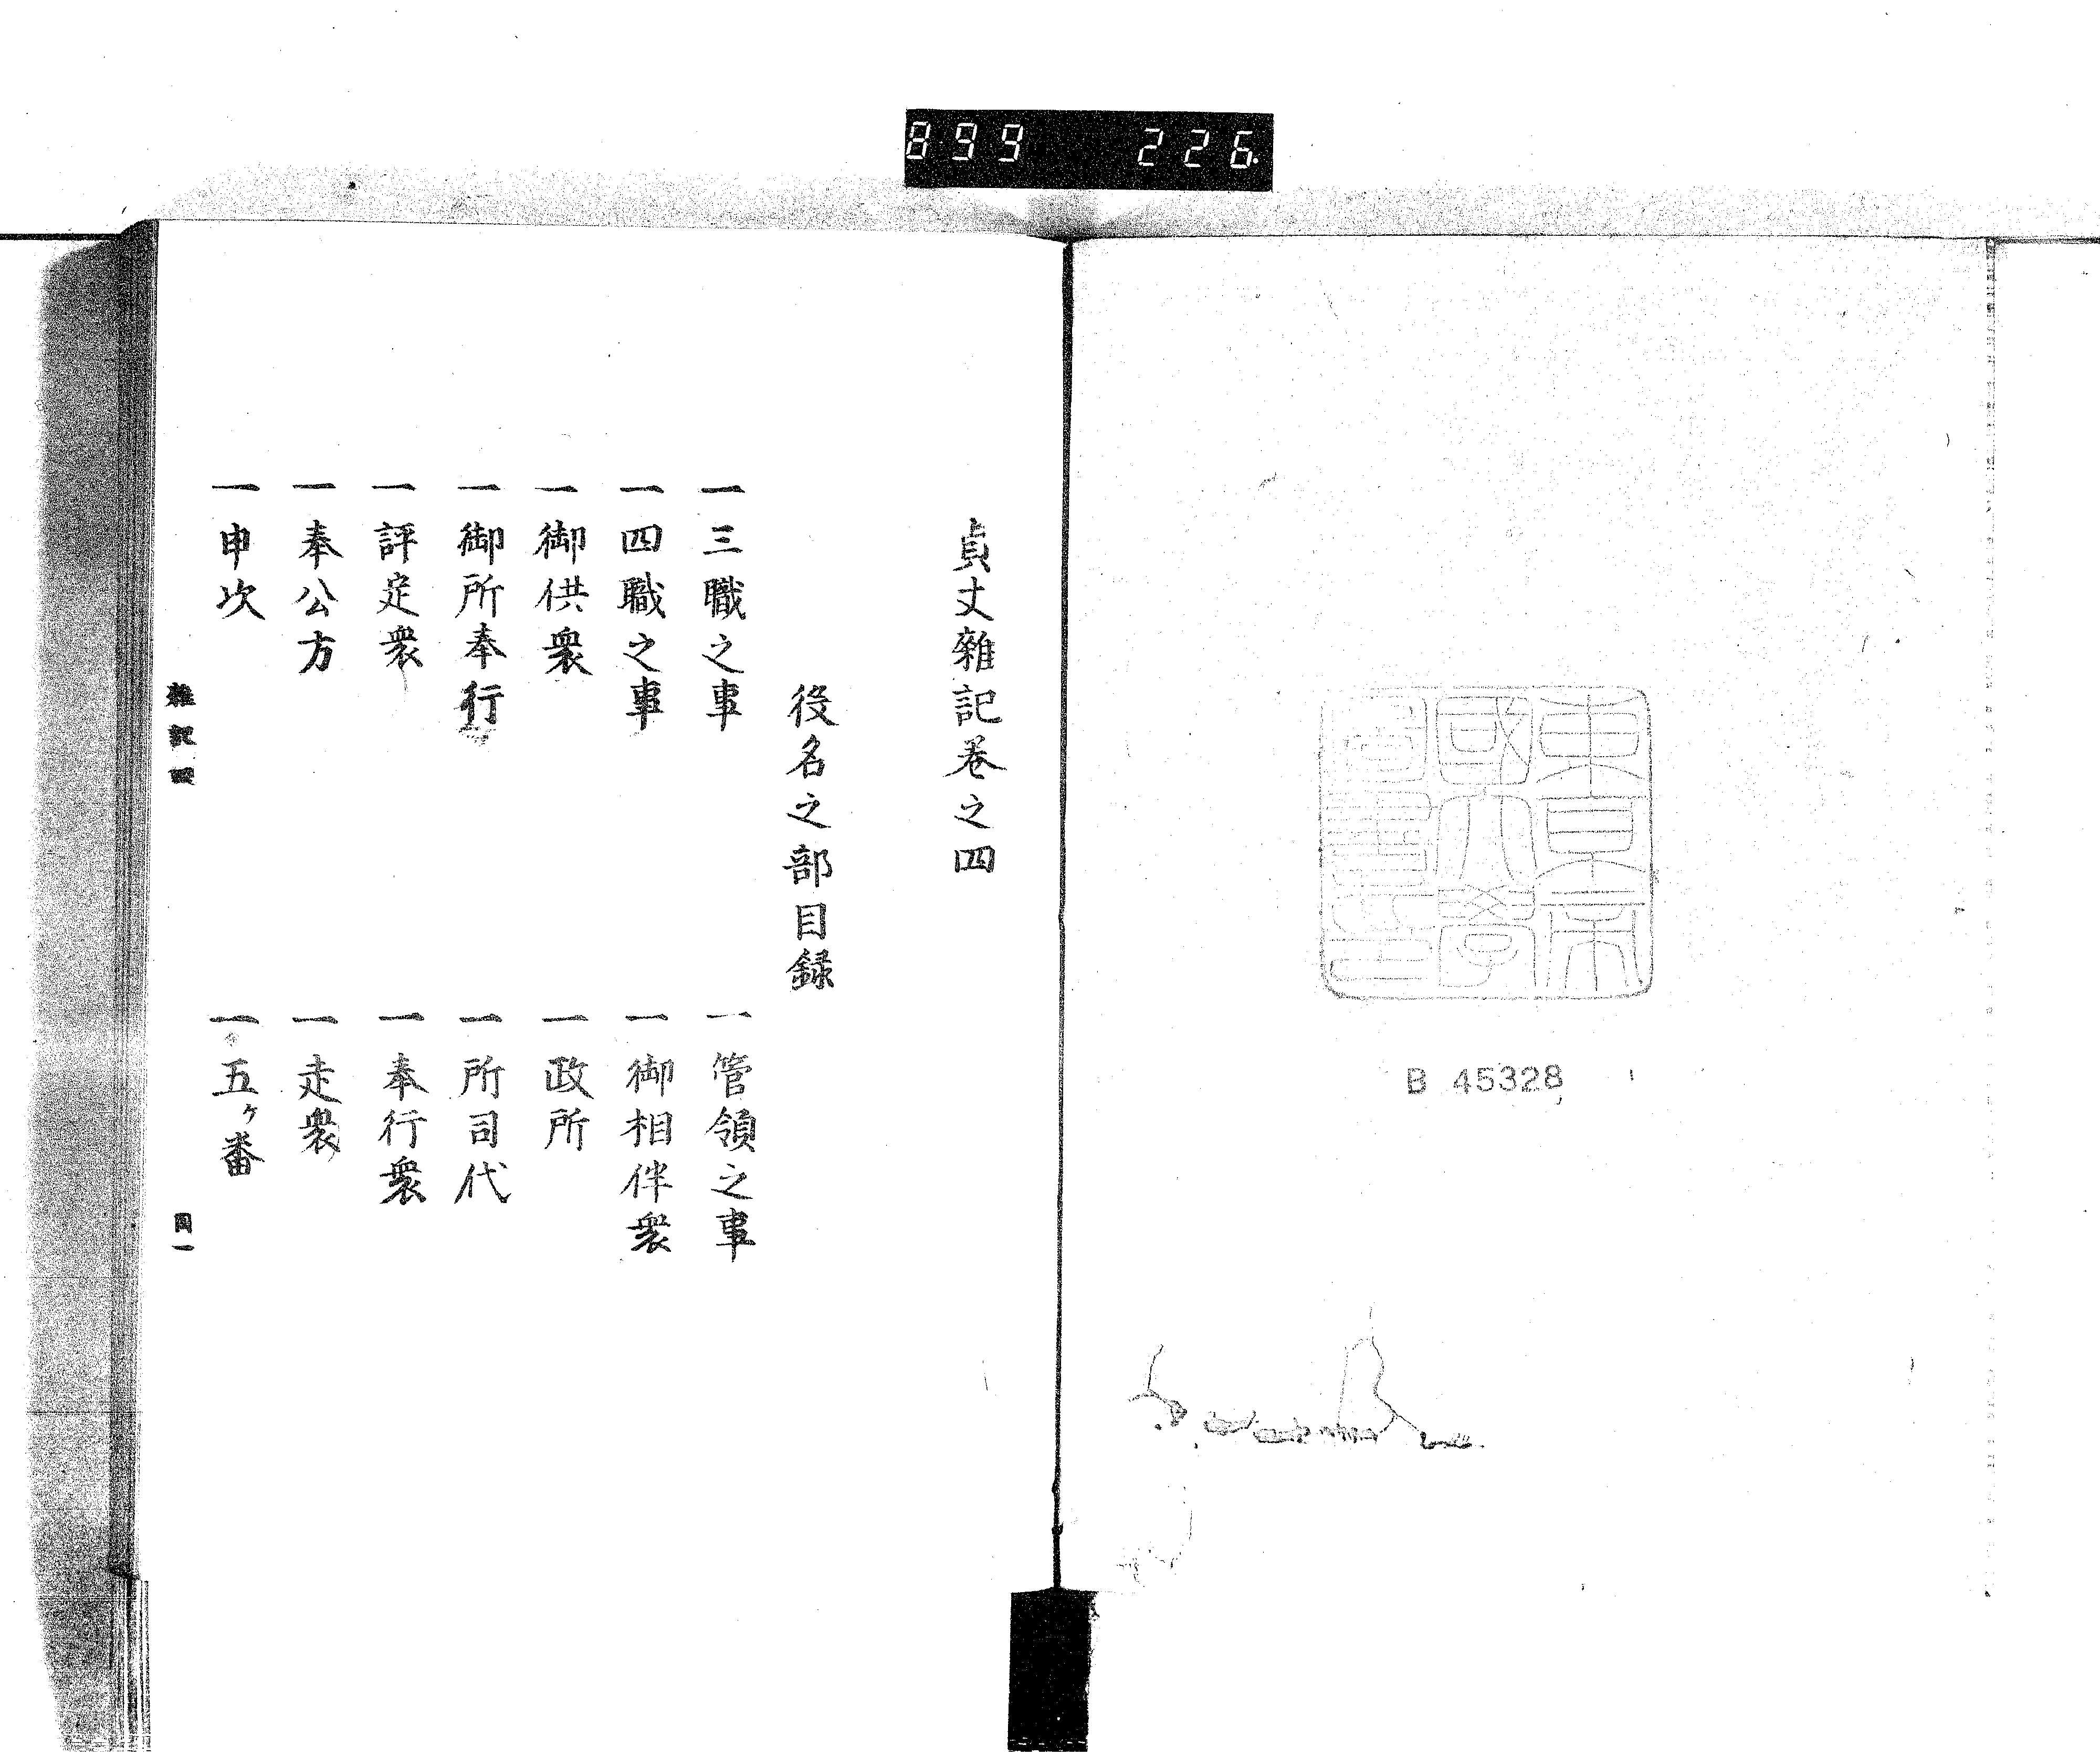 899 226
東京帝
國大學
圖書印
B 45328
貞丈雜記巻之四
役名之部目録
一三職之事
一管領之事
一四職之事
一御相伴衆
一御供衆
一政所
一御所奉行
一所司代
一評定衆
一奉行衆
一奉公方
一走衆
一申次
一五ヶ番
雜記四
目一